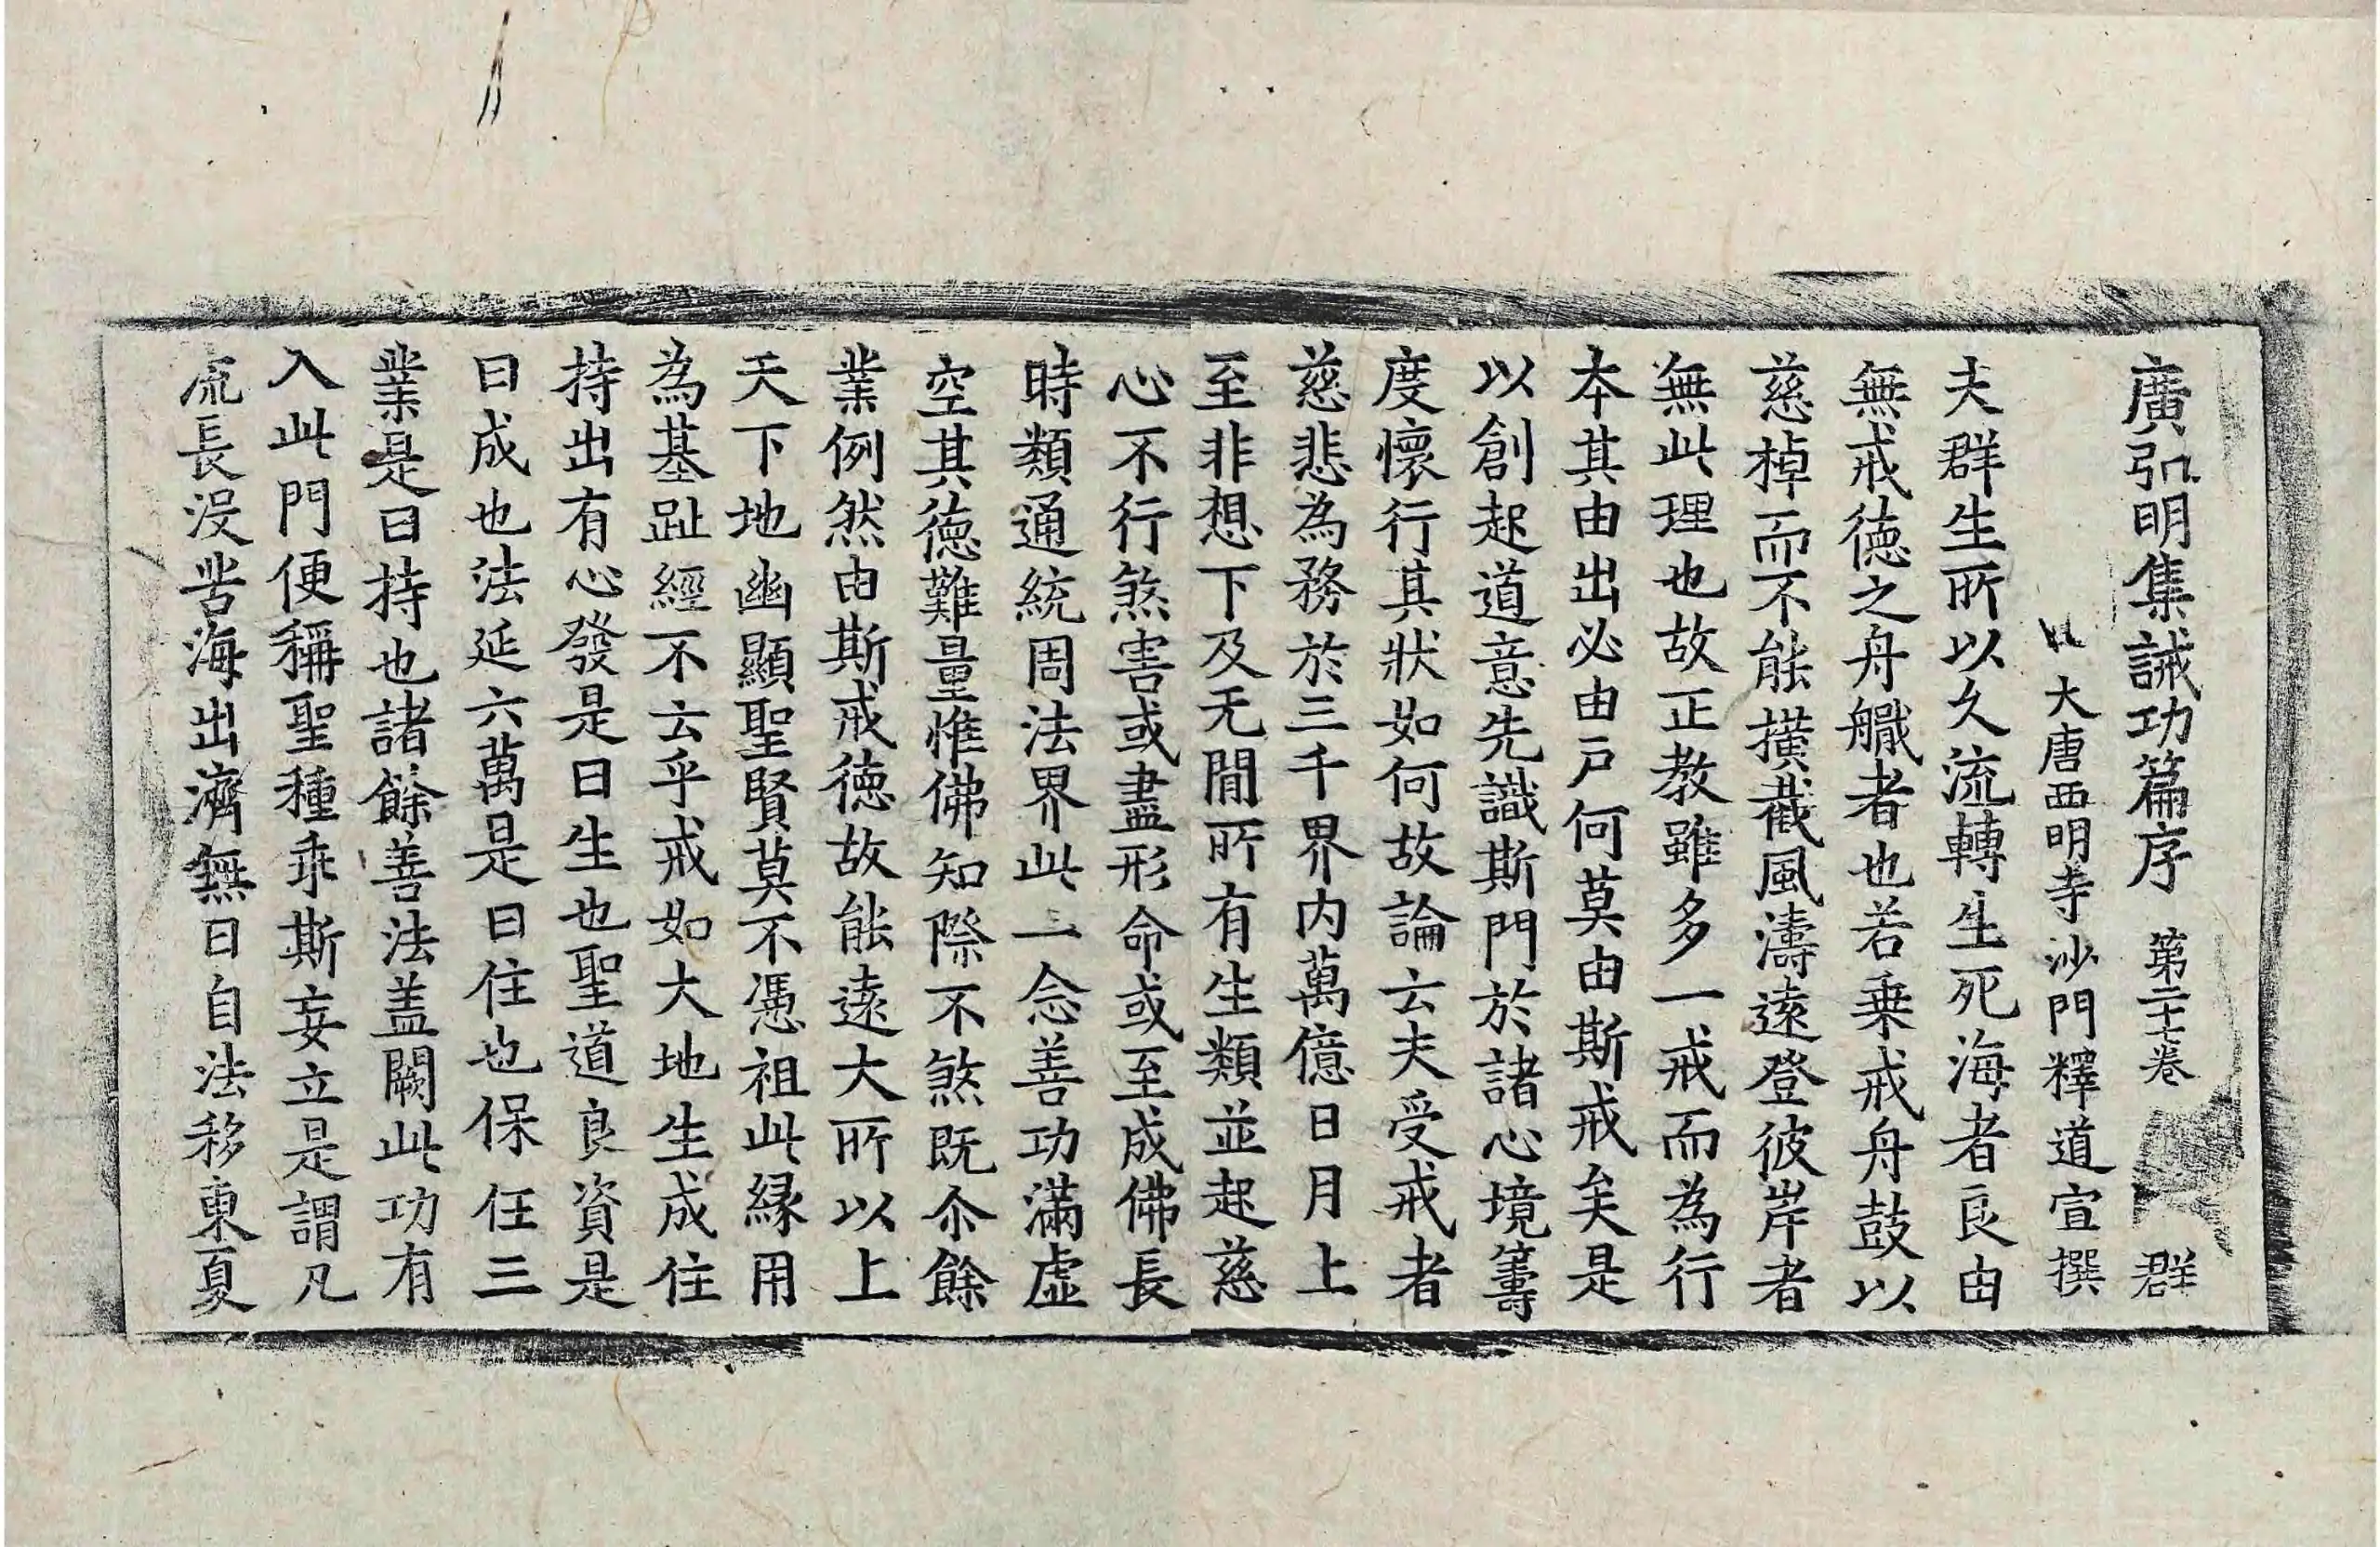 廣弘明集誡功篇序 第二十七卷 群
大唐西明寺沙門釋道宣撰
夫群生所以久流轉生死海者良由
無戒德之舟艥者也若乗戒舟鼓以
慈棹而不能撗截風濤遠登彼岸者
無此理也故正教雖多一戒而為行
本其由出必由戸何莫由斯戒矣是
以創起道意先識斯門於諸心境籌
度懷行其狀如何故論云夫受戒者
慈悲為務於三千界内萬億日月上
至非想下及无間所有生類並起慈
心不行煞害或盡形命或至成佛長
時類通統周法界此一念善功滿虛
空其德難量惟佛知際不煞既尒餘
業例然由斯戒德故能遠大所以上
天下地幽顯聖賢莫不憑祖此縁用
為基趾經不云乎戒如大地生成住
持出有心發是曰生也聖道良資是
曰成也法延六萬是曰住也保任三
業是曰持也諸餘善法盖闕此功有
入此門便稱聖種乖斯妄立是謂凡
流長没苦海出濟無日自法移東夏